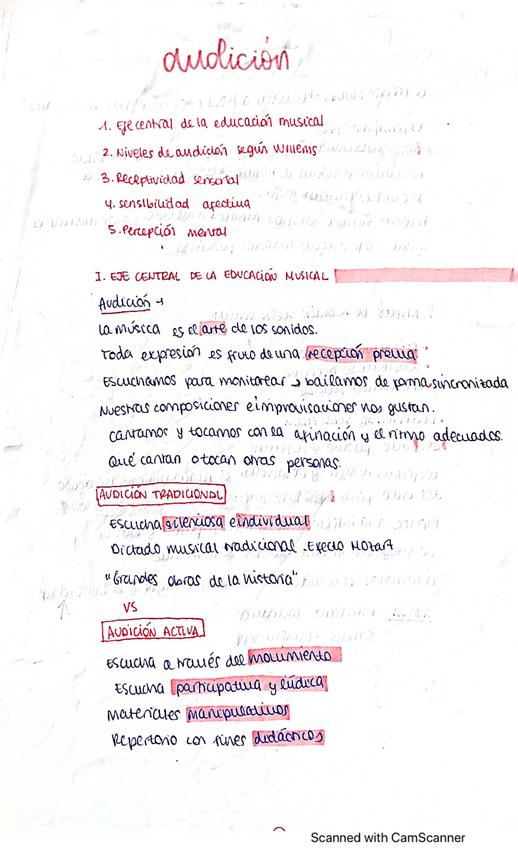 audición
1. Eje central de la educación musical
2. Niveles de audición según Willems
3. Receptividad sensorial
4. sensibilidad afectiva
5. Percepción mental
I. EJE CENTRAL DE LA EDUCACIÓN MUSICAL
Audición →
La música es el arte de los sonidos.
Toda expresión es fruto de una recepción previa
Escuchamos para monitorear → bailamos de forma sincronizada
Nuestras composiciones e improvisaciones nos gustan.
cantamos y tocamos con la afinación y el ritmo adecuados.
Qué cantan o tocan otras personas.
AUDICIÓN TRADICIONAL
Escucha silenciosa e individual
Dictado musical tradicional. Efecto Mozart
"Grandes obras de la historia"
VS
AUDICIÓN ACTIVA
Escucha a través del movimiento
Escucha participativa y lúdica
Materiales manipulativos
Repertorio con fines didácticos
Scanned with CamScanner